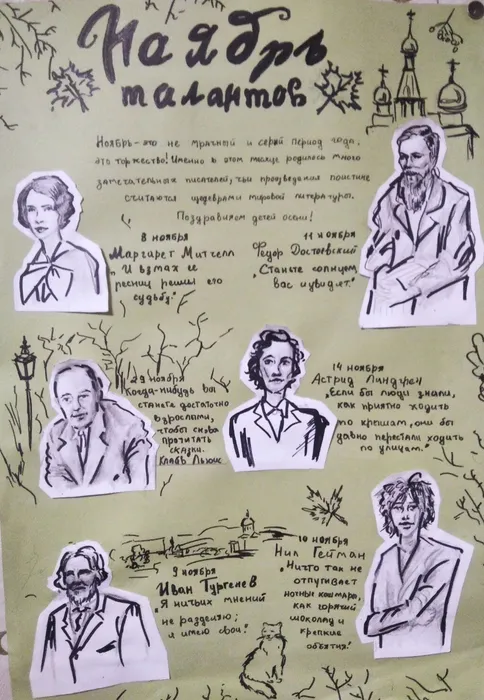 Ноябрь
талантов
Ноябрь - это не мрачный и серый период года,
это торжество! Именно в этом месяце родилось много
замечательных писателей, чьи произведения поистине
считаются шедеврами мировой литературы.
Поздравляем детей осени!
8 ноября
Маргарет Митчелл
„И взмах ее
ресниц решил его
судьбу."
11 ноября
Федор Достоевский
„Станьте солнцем,
вас и увидят."
29 ноября
Когда-нибудь вы
станете достаточно
взрослыми,
чтобы снова
прочитать
сказки.
Клайв Льюис
14 ноября
Астрид Линдгрен
„Если бы люди знали,
как приятно ходить
по крышам, они бы
давно перестали ходить
по улицам."
9 ноября
Иван Тургенев
Я ничьих мнений
не разделяю;
я имею свои."
10 ноября
Нил Гейман
„Ничто так не
отпугивает
ночные кошмары,
как горячий
шоколад и
крепкие
объятия."